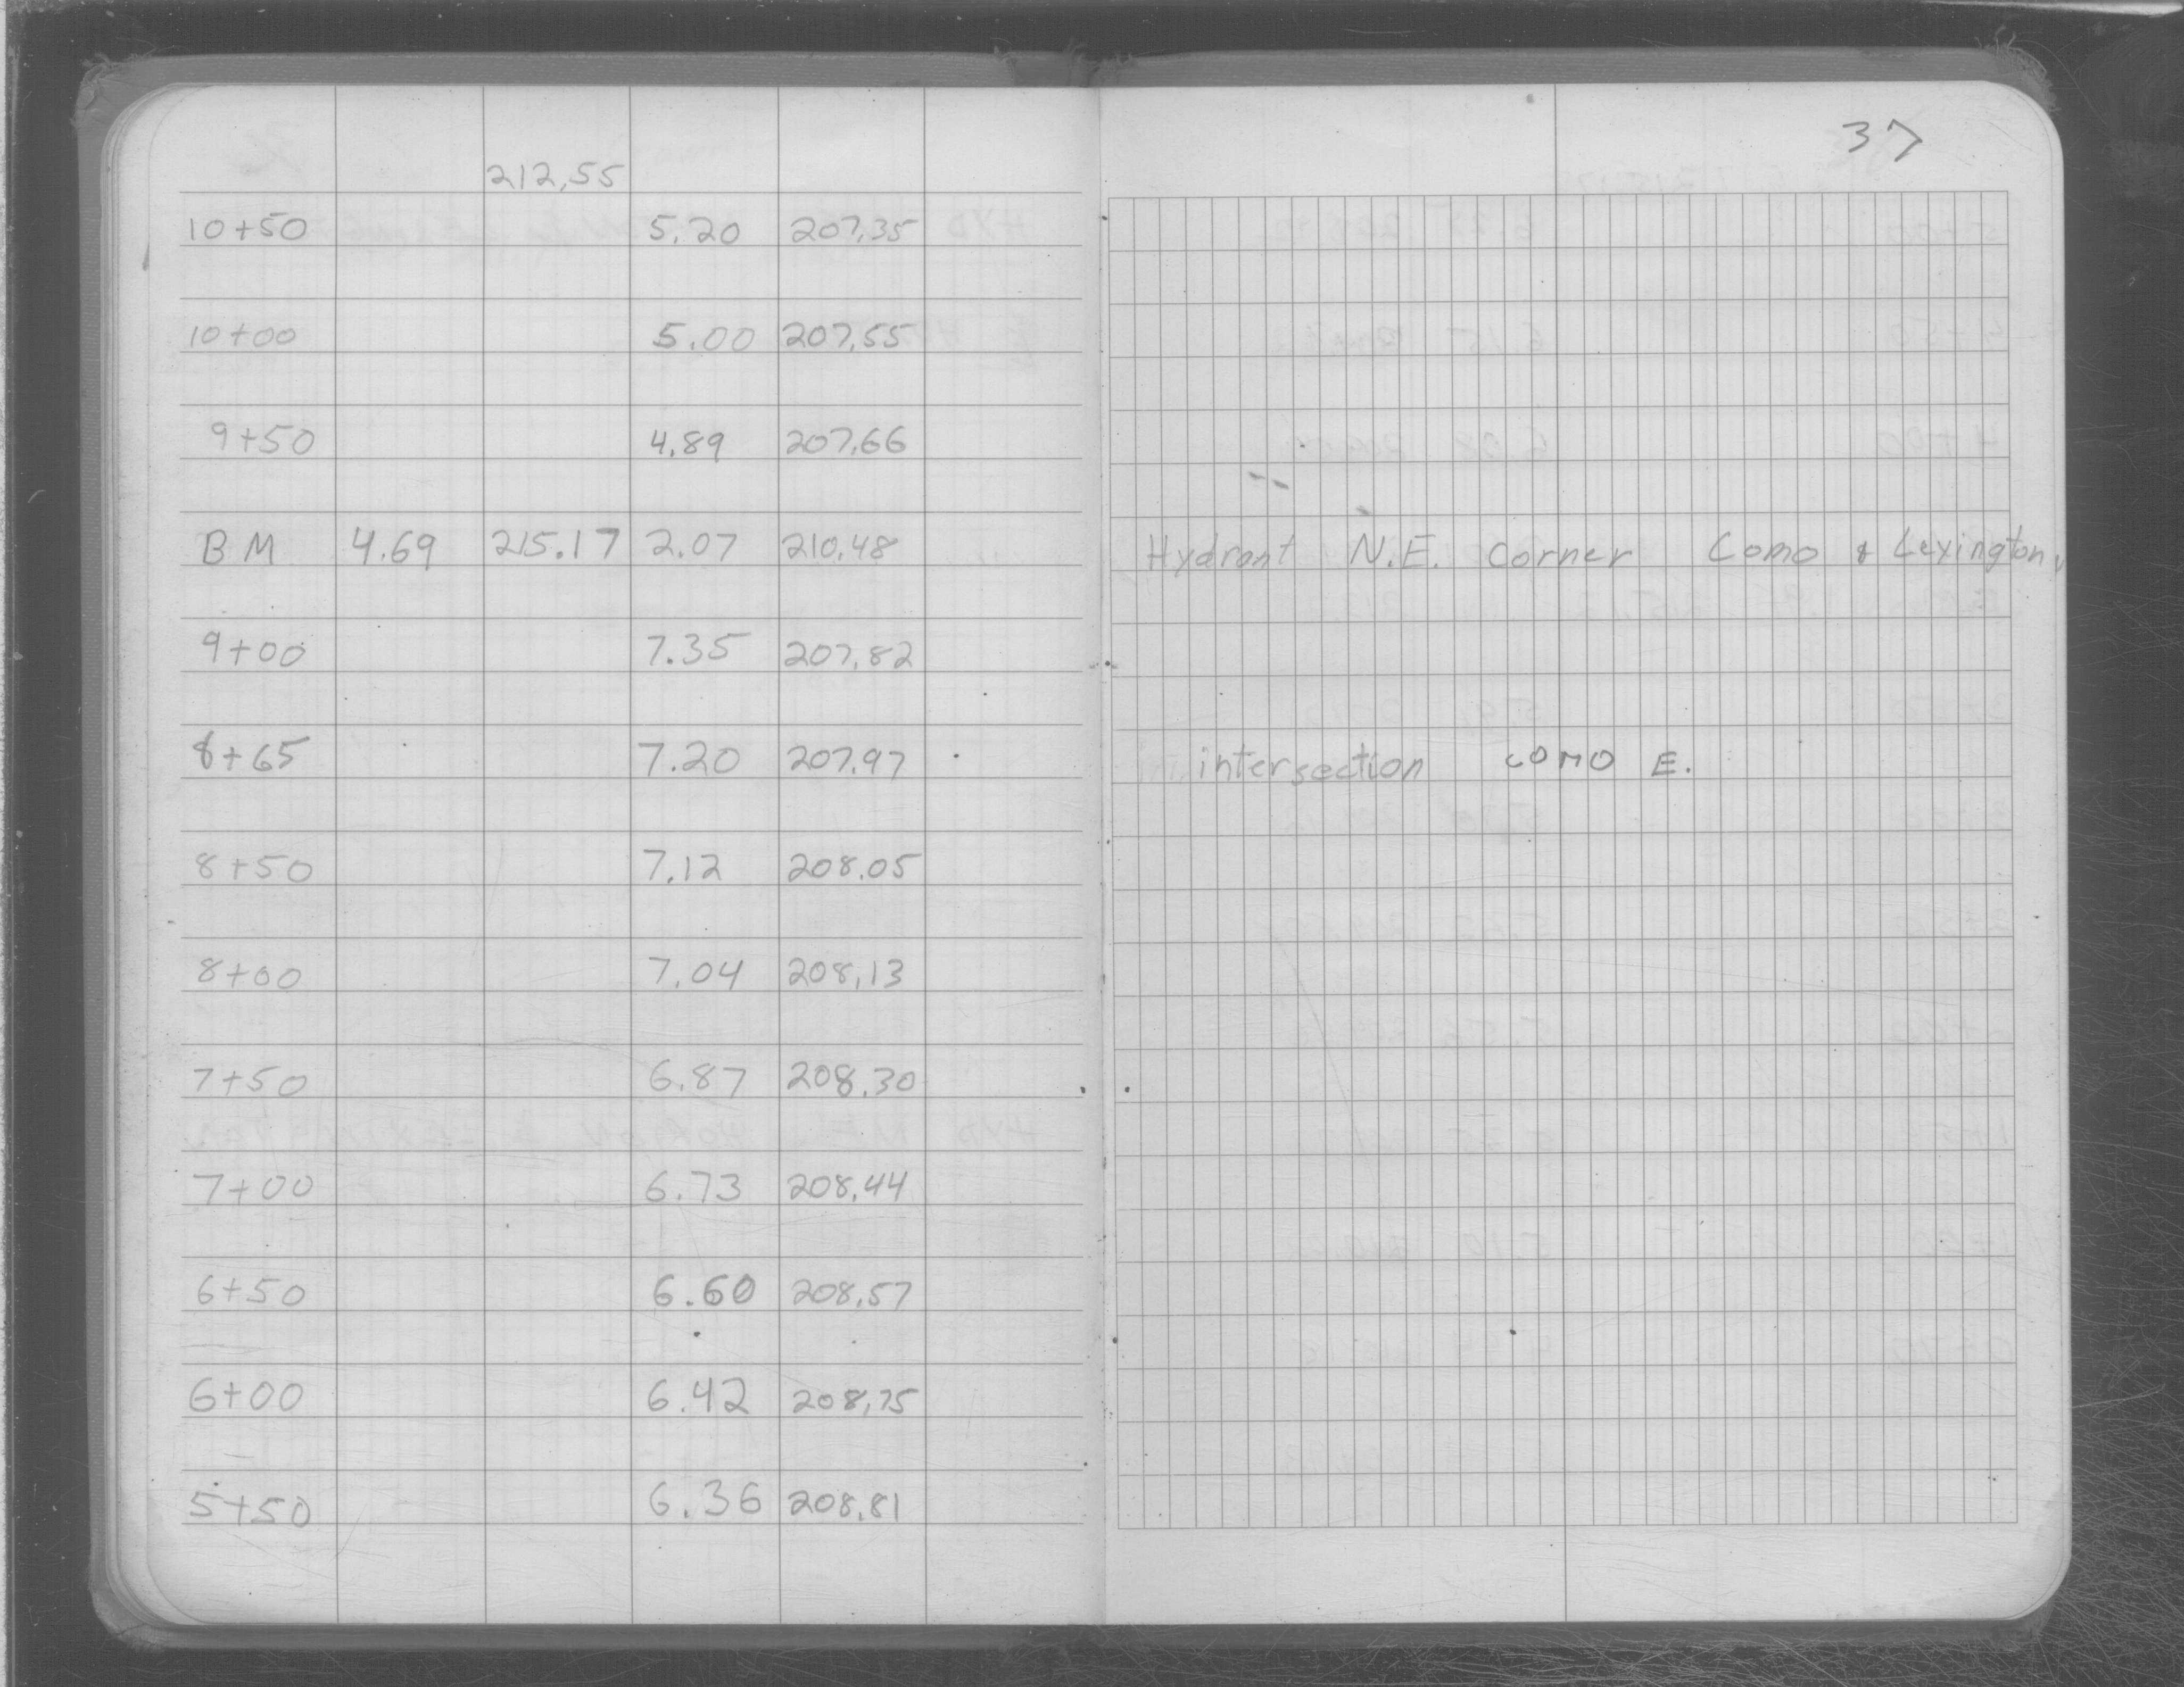 37
212.55
10+50 5.20 207.35
10+00 5.00 207.55
9+50 4.89 207.66
BM 4.69 215.17 2.07 210.48 Hydrant N.E. Corner Como & Lexington.
9+00 7.35 207.82
8+65 7.20 207.97 intersection COMO E.
8+50 7.12 208.05
8+00 7.04 208.13
7+50 6.87 208.30
7+00 6.73 208.44
6+50 6.60 208.57
6+00 6.42 208.75
5+50 6.36 208.81